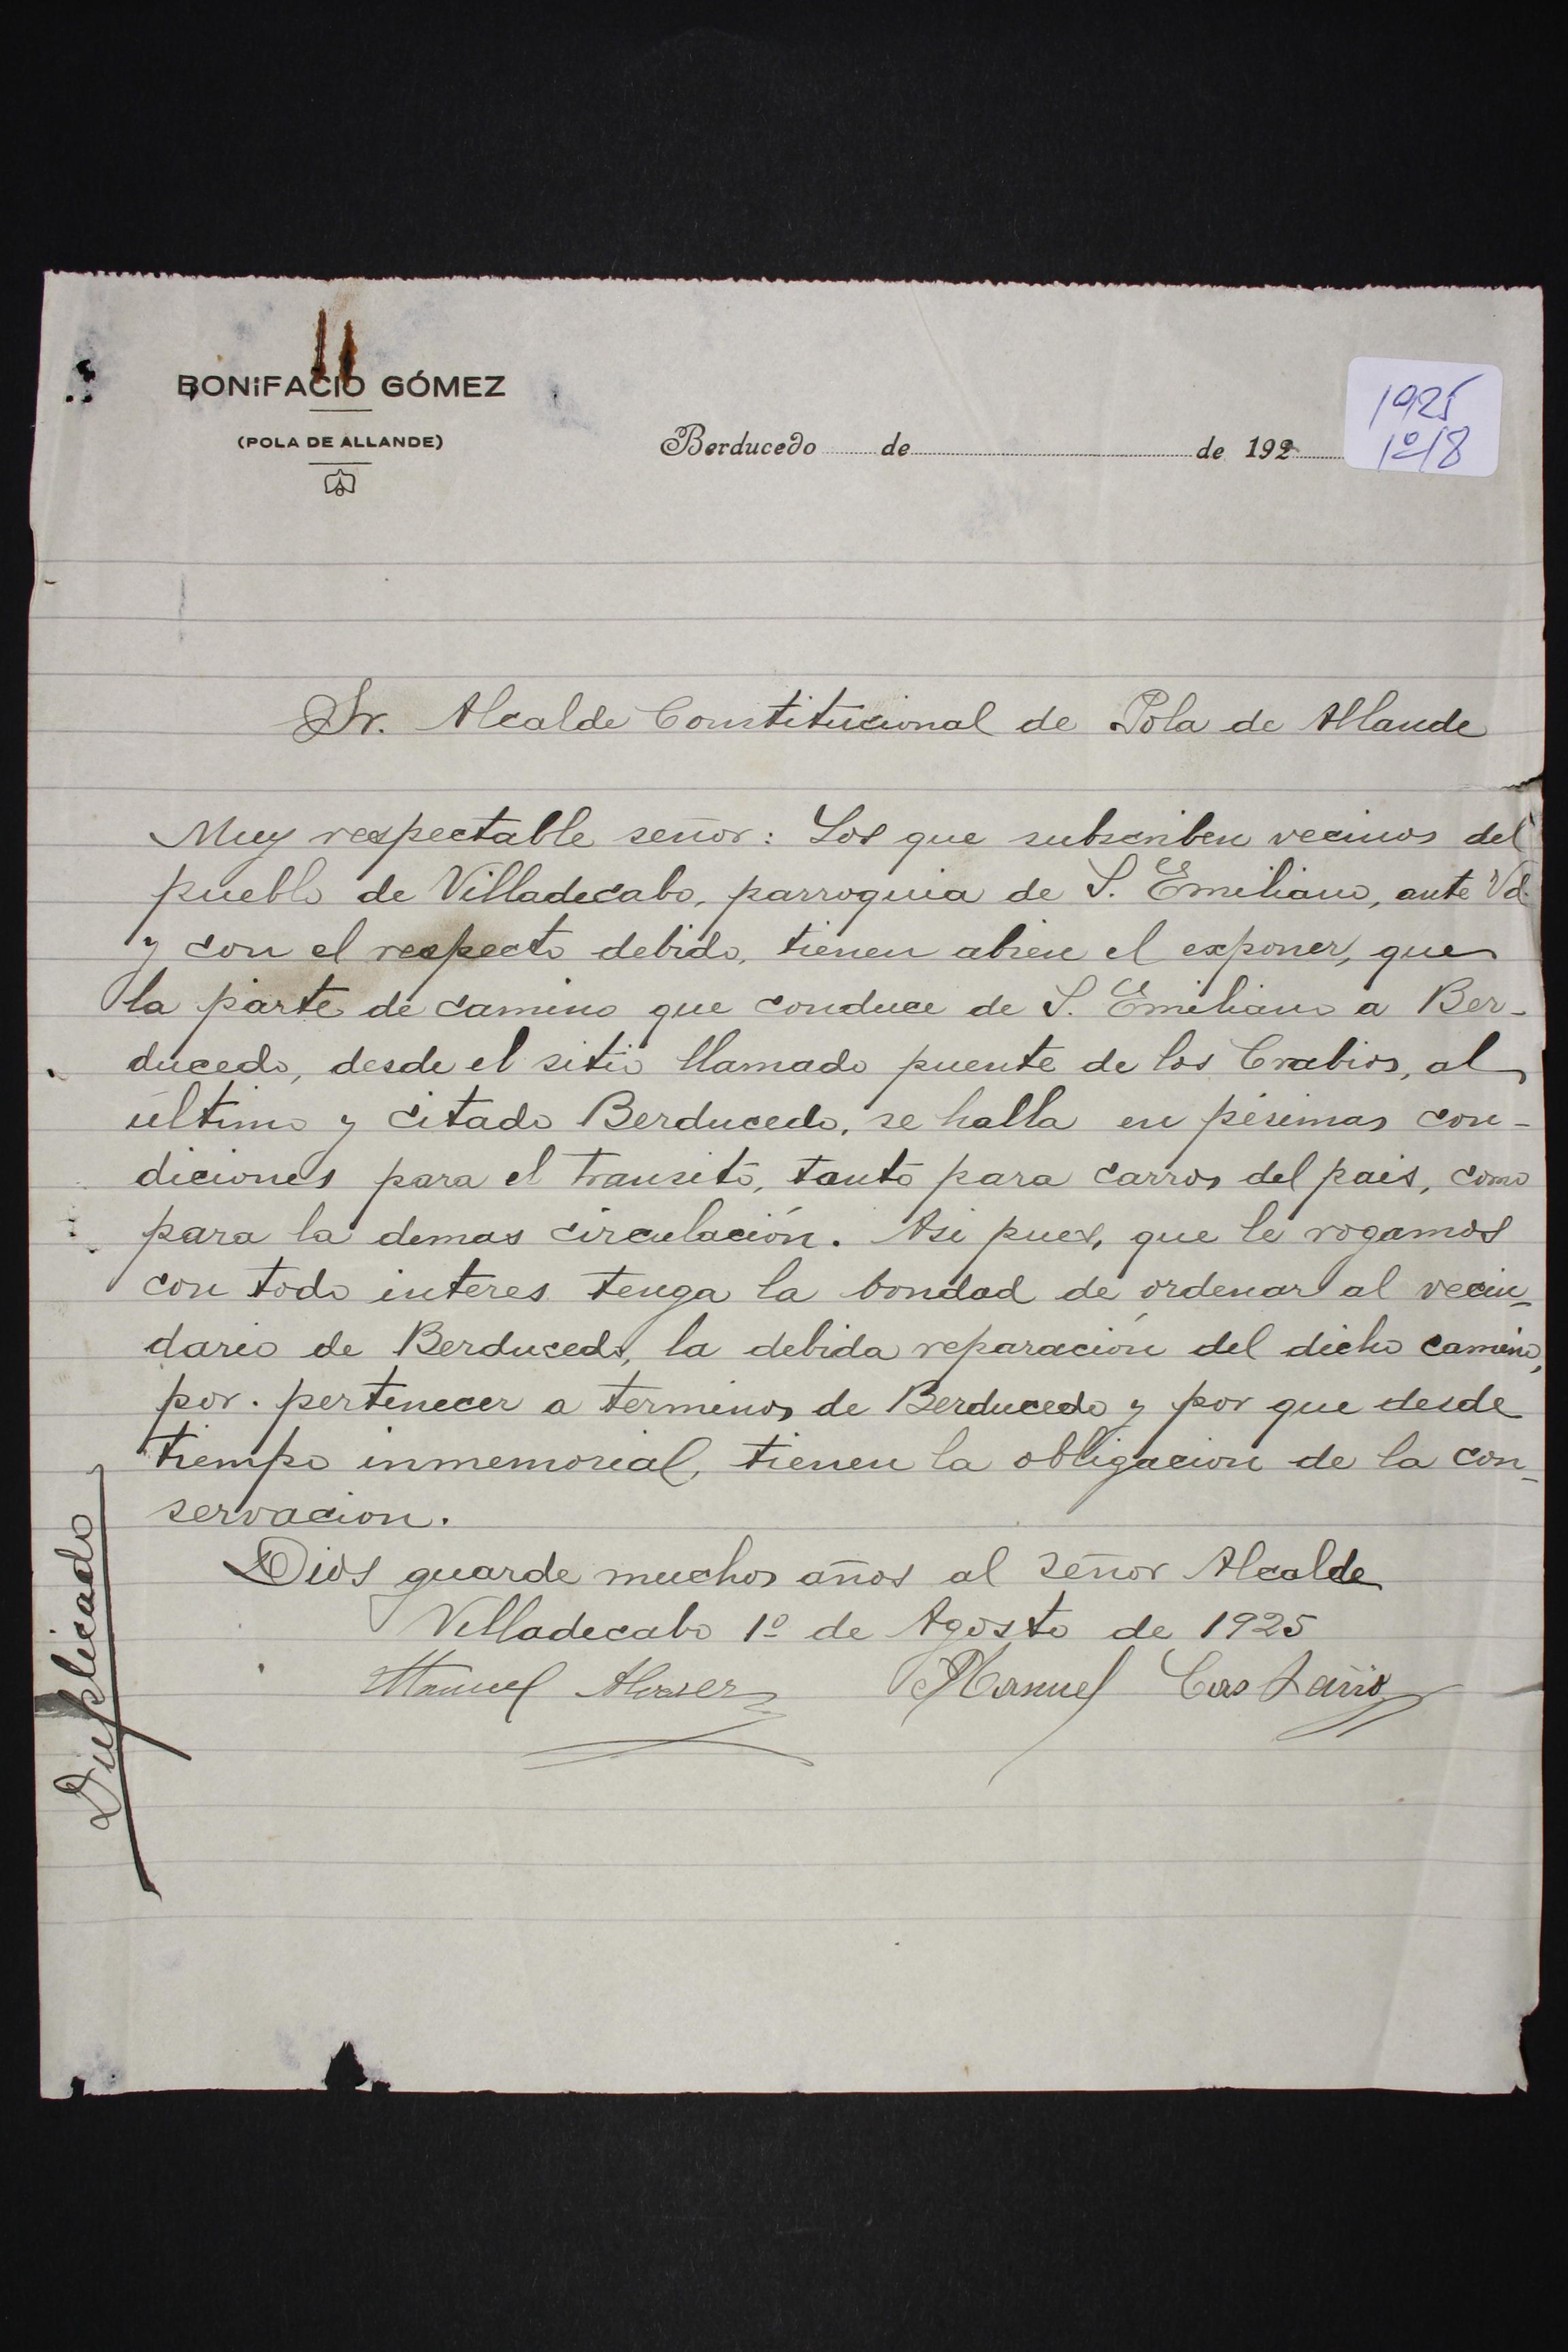 BONiFACIO GÓMEZ
(POLA DE ALLANDE)
Berducedo de de 192
1925
1º/8
Sr. Alcalde Constitucional de Pola de Allande
Muy respectable señor: Los que subscriben vecinos del
pueblo de Villadecabo, parroquia de S. Emiliano, ante Vd.
y con el respecto debido, tienen abien el exponer, que
la parte de camino que conduce de S. Emiliano a Ber-
ducedo, desde el sitio llamado puente de los Crabios, al
ultimo y citado Berducedo, se halla en pésimas con-
diciones para el transito, tanto para carros del pais, como
para la demas circulación. Asi pues, que le rogamos
con todo interes tenga la bondad de ordenar al vecin-
dario de Berducedo, la debida reparación del dicho camino,
por. pertenecer a terminos de Berducedo y por que desde
tiempo inmemorial, tienen la obligacion de la con-
servacion.
Dios guarde muchos años al señor Alcalde
Villadecabo 1º de Agosto de 1925
Manuel Alvarez Manuel Castaño
Duplicado